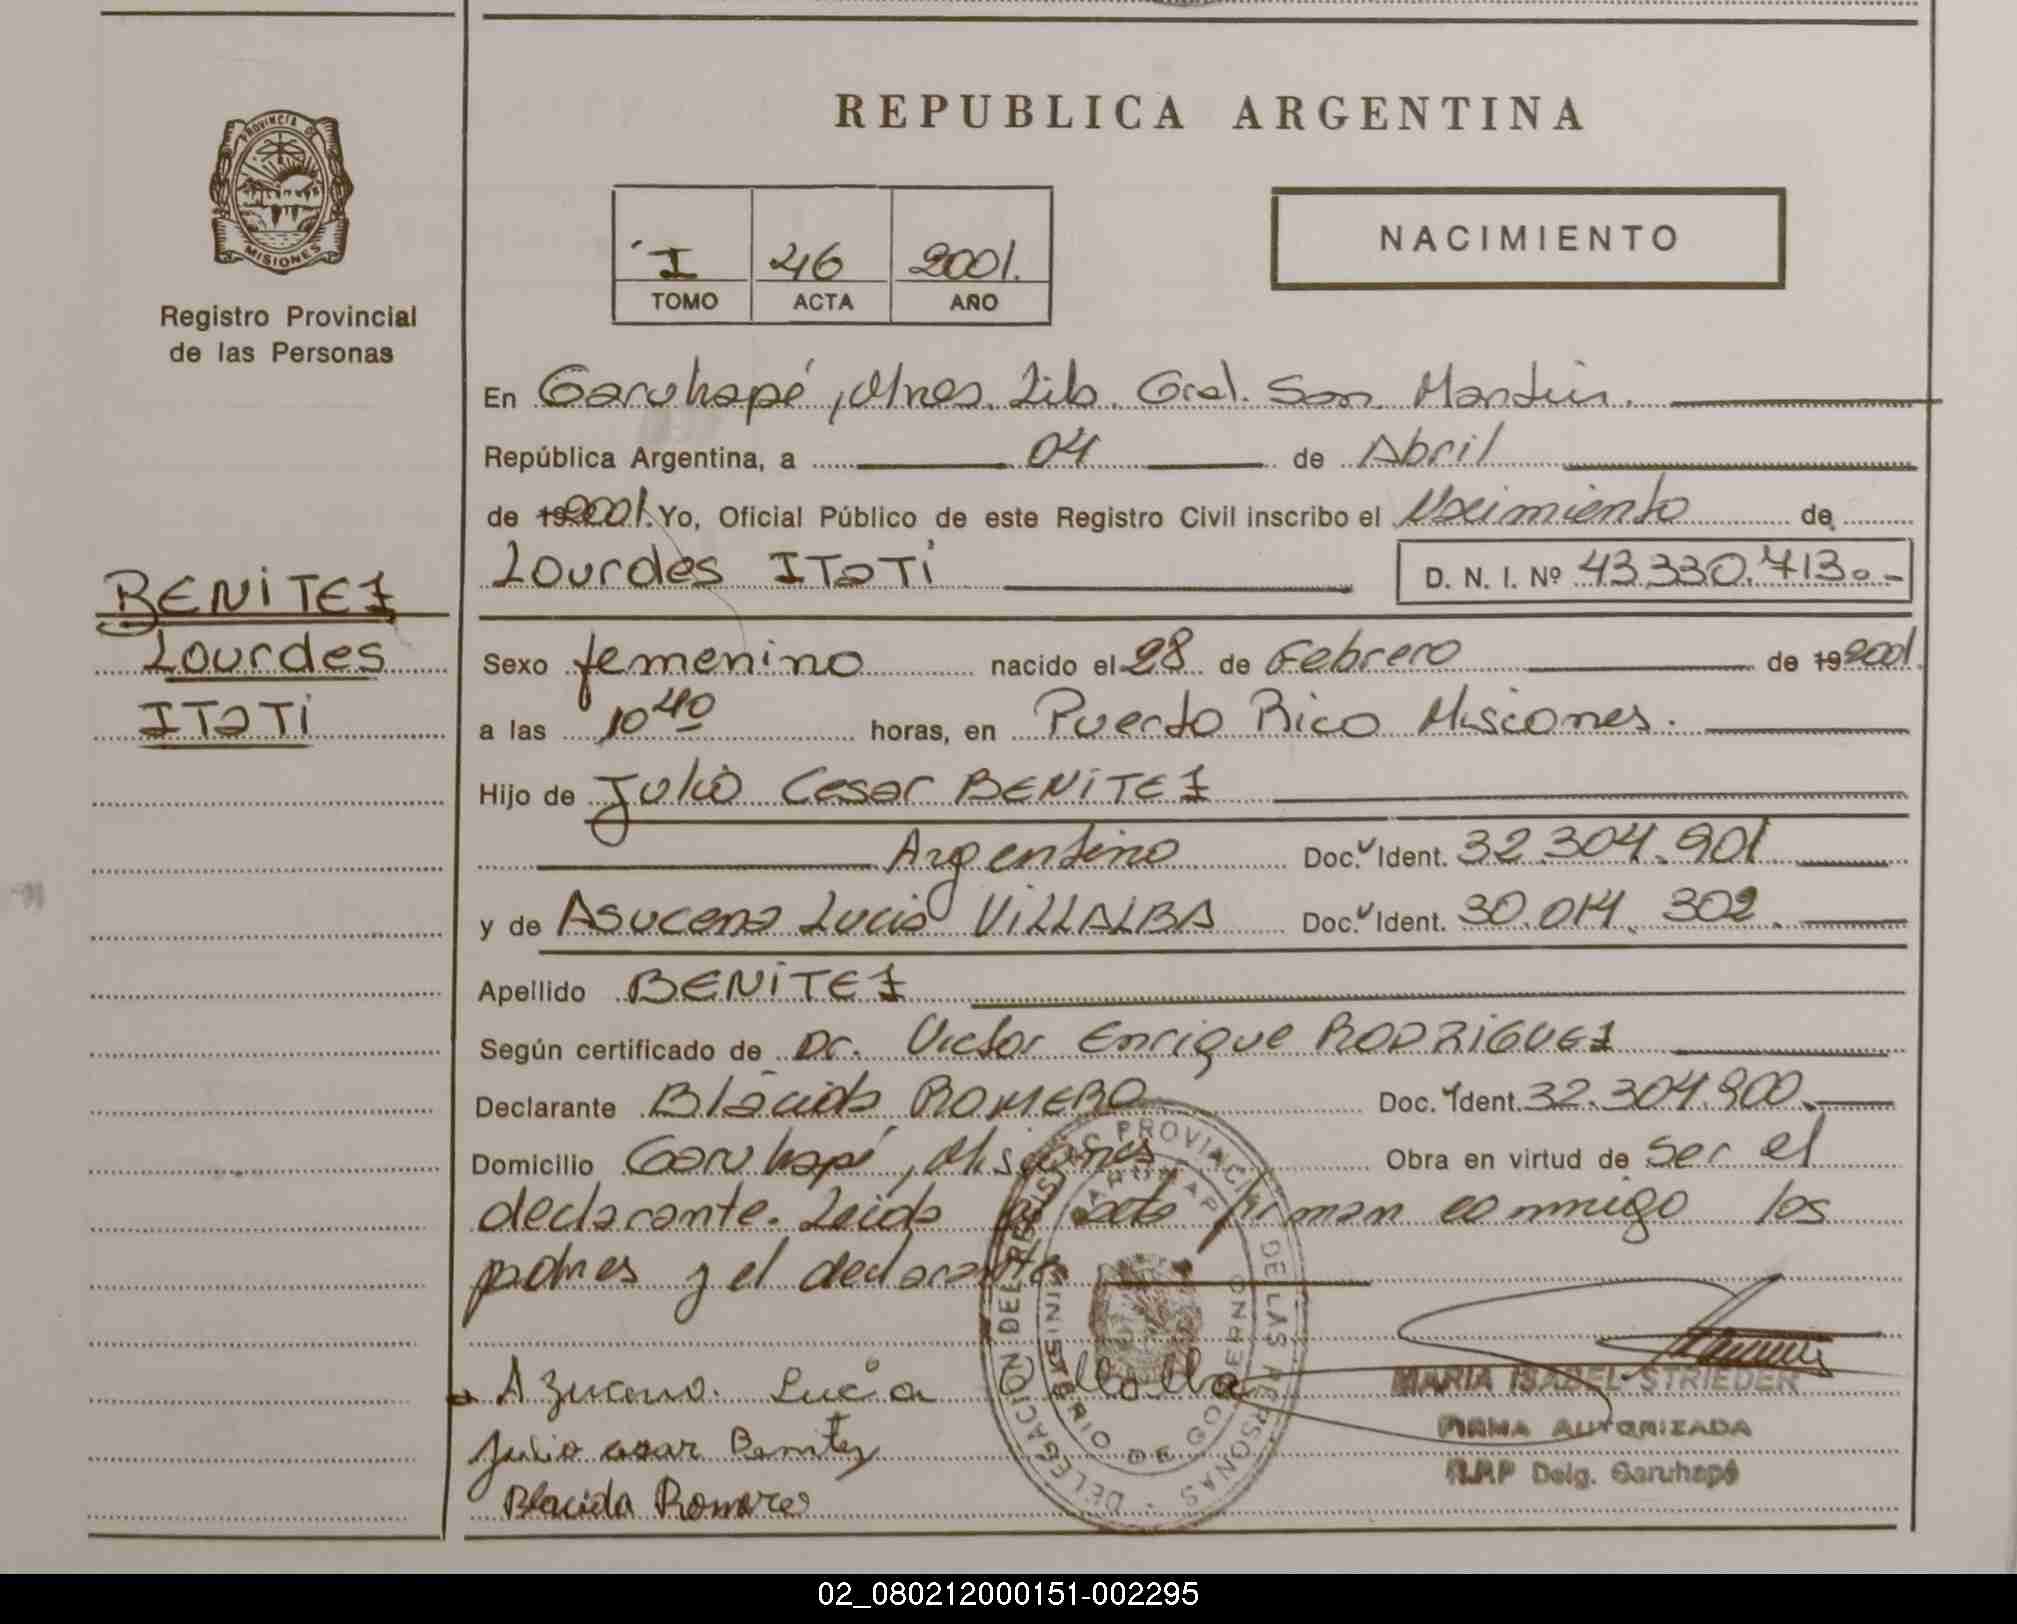 REPUBLICA ARGENTINA
PROVINCIA DE
MISIONES
Registro Provincial
de las Personas
I 46 2001.
TOMO ACTA AÑO
NACIMIENTO
En Garuhapé, Mnes. Lib. Gral. San Martín.
República Argentina, a 04 de Abril
de 192001. Yo, Oficial Público de este Registro Civil inscribo el Nacimiento de
Lourdes ITaTí D. N. I. Nº 43.330.713.-
BENiTEZ
Lourdes
ITaTí
Sexo femenino nacido el 28 de Febrero de 192001.
a las 10 40 horas, en Puerto Rico Misiones.
Hijo de Julio Cesar BENiTEZ
Argentino Doc. Ident. 32.304.901
y de Asucena Lucia ViLLALBA Doc. Ident. 30.014.302.
Apellido BENiTEZ
Según certificado de Dr. Victor Enrique RODRiGUEZ
Declarante Blácida ROMERO Doc. Ident. 32.304.900.
Domicilio Garuhapé, Misiones Obra en virtud de ser el
declarante. Leida el acta firman conmigo los
padres y el declarante
Azucena Lucia Villalba
Julio cesar Benitez
Blacida Romero
DELEGACIÓN DEL REGISTRO PROVINCIAL DE LAS PERSONAS
GARUHAPE
MINISTERIO DE GOBIERNO
MARIA ISABEL STRIEDER
FIRMA AUTORIZADA
R.P.P Delg. Garuhapé
02_080212000151-002295